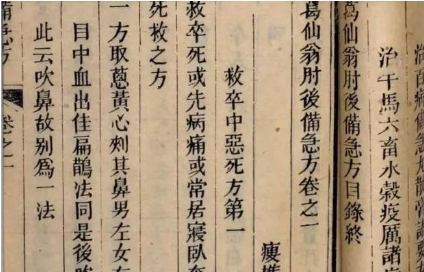 治百病備急丸散膏諸要方
治牛馬六畜水穀疫厲諸
葛仙翁肘後備急方目錄終
葛仙翁肘後備急方卷之一
救卒中惡死方第一
救卒死或先病痛或常居寢臥奄
死救之方
一方取葱黃心刺其鼻男左女右
目中血出佳扁鵲法同是後
此云吹鼻故别爲一法
備急方
卷之一